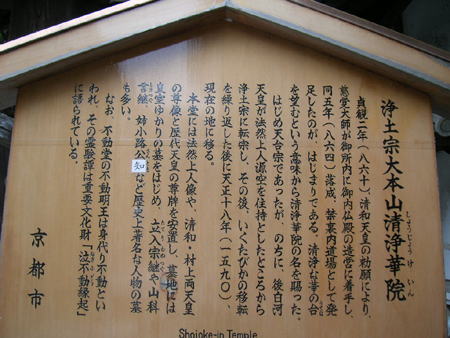 浄土宗大本山清浄華院
しょうじょうけいん
貞観二年（八六〇）、清和天皇の勅願により、
慈覚大師が御所内に御内仏殿の造営に着手し、
同五年（八六四）落成、禁裏内道場として発
足したのが、はじまりである。清浄な華の台
を望むという意味から清浄華院の名を賜った。
はじめ天台宗であったが、のちに、後白河
天皇が法然上人源空を住持としたところから
浄土宗に転宗し、その後、いくたびかの移転
を繰り返した後に天正十八年（一五九〇）、
現在の地に移る。
本堂には法然上人像や、清和・村上両天皇
の尊像と歴代天皇の尊牌を安置し、墓地には
皇室ゆかりの墓をはじめ、立入宗継や山科
言継、姉小路公知など歴史上著名な人物の墓
も多い。
なお、不動堂の不動明王は身代り不動とい
われ、その霊験譚は重要文化財「泣不動縁起」
に語られている。
京都市
Shojoke-in Temple